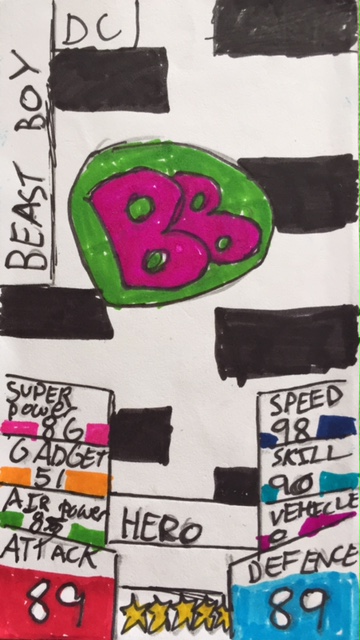 DC
BEAST BOY
BB
SUPER
Power
86
GADGET
51
AIR Power
ATTACK
89
HERO
SPEED
98
SKILL
90
VEHICLE
0
DEFENCE
89